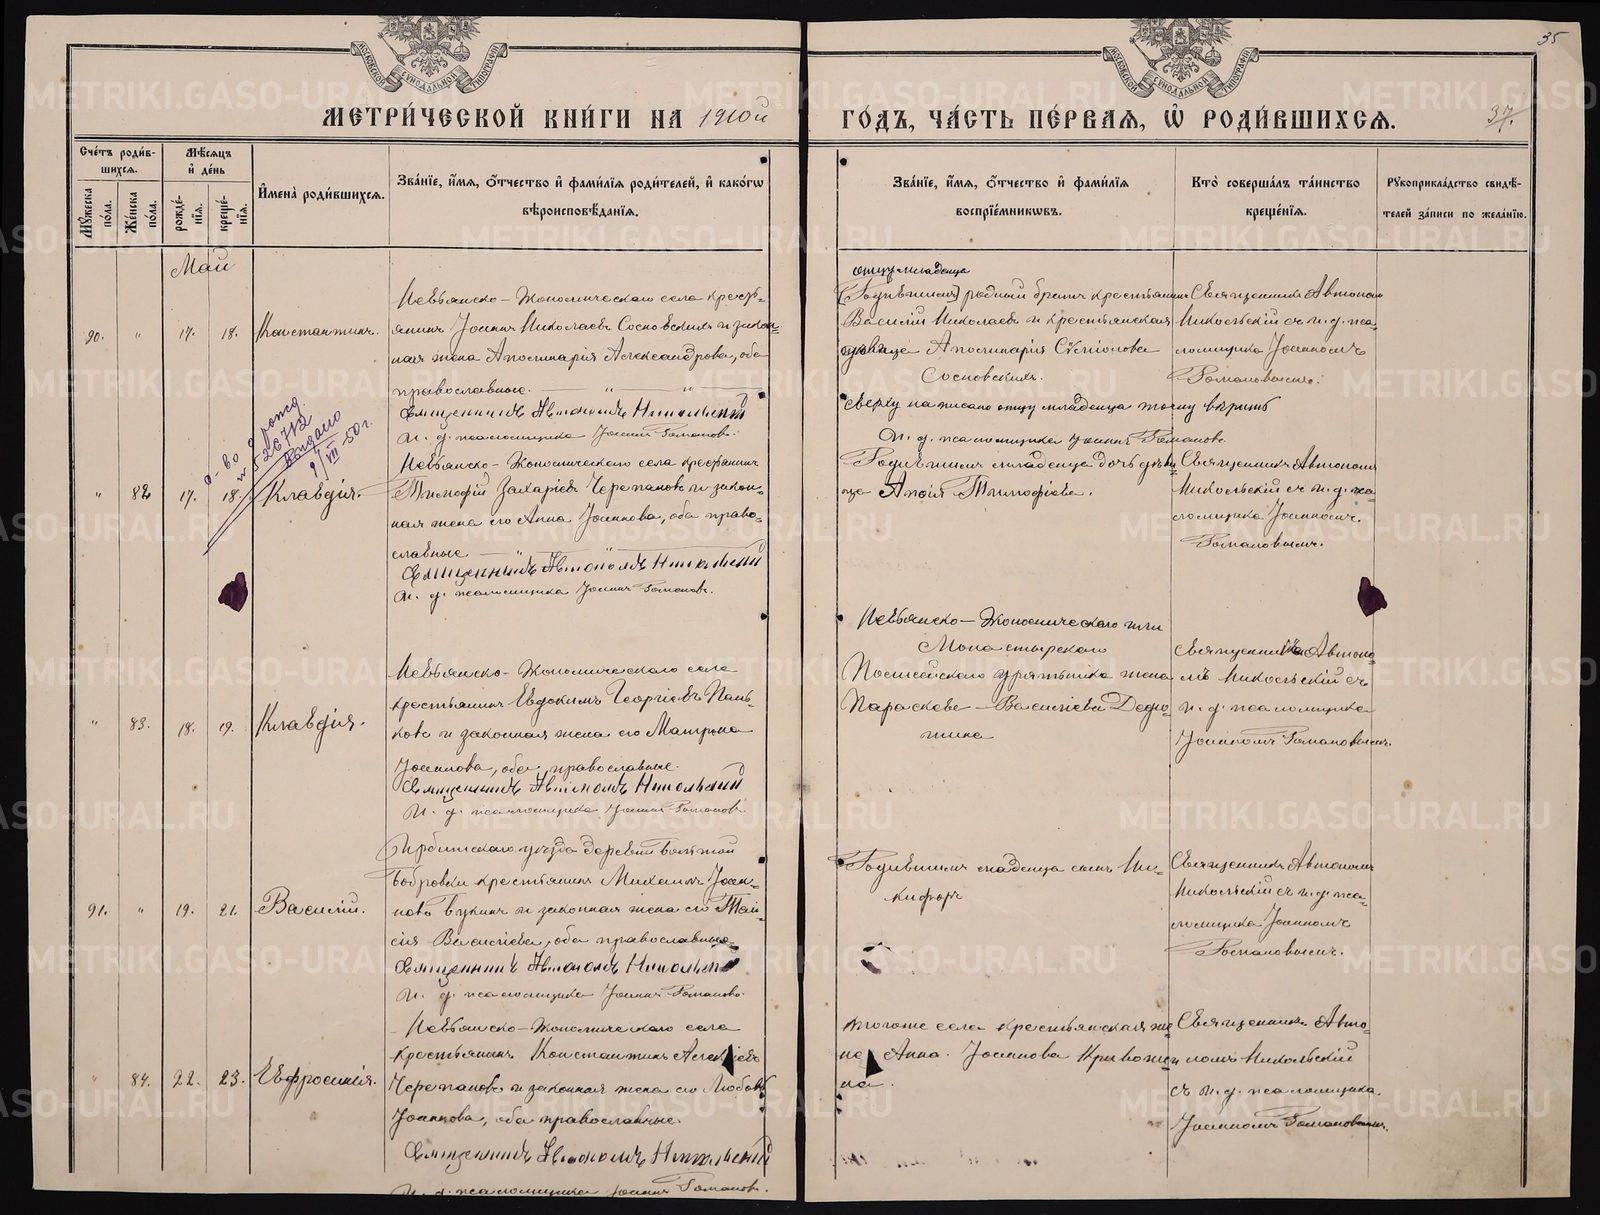 35
МОСКОВСКОЙ СѴНОДАЛЬНОЙ ТИПОГРАФІИ
МОСКОВСКОЙ СѴНОДАЛЬНОЙ ТИПОГРАФІИ
МЕТРИ́ЧЕСКОЙ КНИ́ГИ НА 1910й
ГО́ДЪ, ЧА́СТЬ ПЕ́РВАЯ, Ѽ РОДИ́ВШИХСЯ.
37.
Сче́тъ роди́в-
шихся.
Мѣ́сяцъ
и҆ де́нь
Мꙋ́жеска
по́ла.
Же́нска
по́ла.
рожде́-
нїя.
креще́-
нїя.
И҆мена̀ роди́вшихся.
Зва́нїе, и҆́мя, ѻ҆́тчество и҆ фами́лїя роди́телей, и҆ како́гѡ
вѣроисповѣ́данїя.
Зва́нїе, и҆́мя, ѻ҆́тчество и҆ фами́лїя
воспрїе́мникѡвъ.
Кто̀ соверша́лъ та́инство
креще́нїя.
Рꙋкоприкла́дство свидѣ́-
телей за́писи по жела́нїю.
Май
90. " 17. 18. Константинъ.
Невьянско-Экономическаго села кресть-
янинъ Іоаннъ Николаевъ Сосновскихъ и закон-
ная жена Аполинарія Александрова, оба
православные. " "
Священникъ Автономъ Никольскій
И. д. псаломщика Іоаннъ Романовъ.
отцу младенца
(Родившимся) родный братъ крестьянинъ
Василій Николаевъ и крестьянская
Аполинарія
Сосновскихъ.
сверху написано отцу младенца
И. д. псаломщика Іоаннъ Романовъ
Священникъ Автономъ
Никольскій съ и. д. пса-
ломщика Іоанномъ
Романовымъ.
№ 526712
выдано
9/VII-50 г.
" 82 17. 18. Клавдія.
Невьянско-Экономическаго села крестьянинъ
Тимофій Захаріевъ Черепановъ и закон-
ная жена его Анна Іоаннова, оба право-
славные " "
Священникъ Автономъ Никольскій
И. д. псаломщика Іоаннъ Романовъ.
Родившимся младенца дочь дѣви-
ца Тимофіева.
Священникъ Автономъ
Никольскій съ и. д. пса-
ломщика Іоанномъ
Романовымъ.
" 83. 18. 19. Клавдія.
Невьянско-Экономическаго села
крестьянинъ Евдокимъ Георгіевъ Пань-
ковъ и законная жена его Матрона
Іоаннова, оба православные.
Священникъ Автономъ Никольскій
И. д. псаломщика Іоаннъ Романовъ
Невьянско-Экономическаго или
Монастырскаго
Полицейскаго урядника жена
Параскева Васильева
Священникъ Автоно-
мъ Никольскій съ
и. д. псаломщика
Іоанномъ Романовымъ.
91. " 19. 21. Василій.
Ирбитскаго уѣзда деревни большой
Бобровки крестьянинъ Михаилъ Іоан-
новъ Букинъ и законная жена его Таи-
сія Васильева, оба православные.
Священникъ Автономъ Никольскій
И. д. псаломщика Іоаннъ Романовъ
Родившимся младенца сынъ Ни-
кифоръ
Священникъ Автономъ
Никольскій съ и. д. пса-
ломщика Іоанномъ
Романовымъ.
" 84. 22. 23. Евфросинія.
Невьянско-Экономическаго села
крестьянинъ Константинъ Алексіевъ
Черепановъ и законная жена его Любовь
Іоаннова, оба православные.
Священникъ Автономъ Никольскій
И. д. псаломщика Іоаннъ Романовъ.
тогоже села крестьянская же-
на Анна Іоаннова Кривоши-
на.
Священникъ Авто-
номъ Никольскій
съ и. д. псаломщика
Іоанномъ Романовымъ.
METRIKI.GASO-URAL.RU